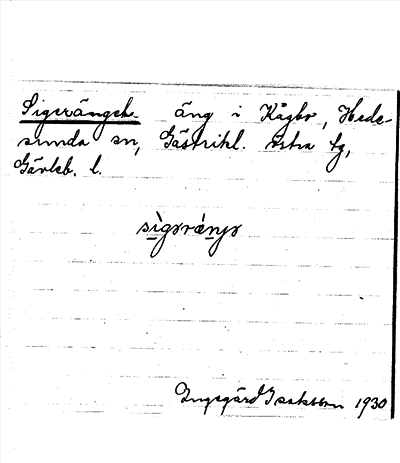 Sigerängeh. äng i Kågbo, Hede-
sunda sn, Gästrikl. östra tg,
Gävleb. l.
Ingegärd Isaksson 1930